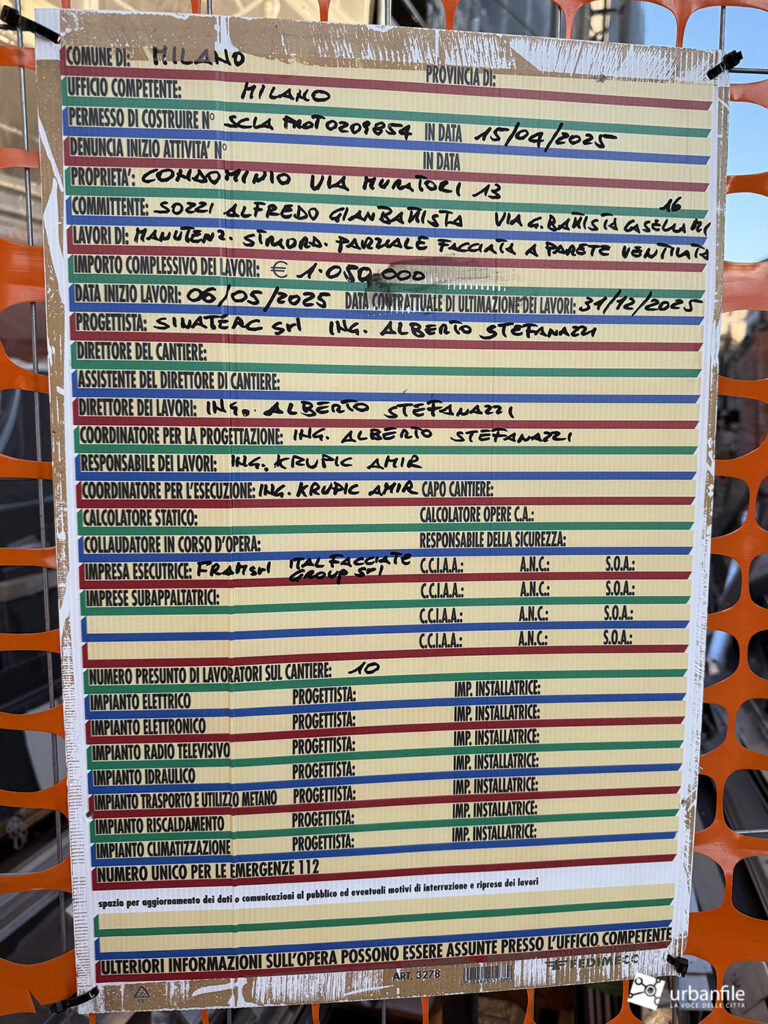 COMUNE DI: MILANO PROVINCIA DI:
UFFICIO COMPETENTE: MILANO
PERMESSO DI COSTRUIRE N° SCIA PROT0209854 IN DATA 15/04/2025
DENUNCIA INIZIO ATTIVITA' N° IN DATA
PROPRIETA': CONDOMINIO VIA MURATORI 13
COMMITTENTE: SOZZI ALFREDO GIANBATTISTA VIA G. BATTISTA CASELLA 16
LAVORI DI: MANUTENZ. STRAORD. PARZIALE FACCIATA A PARETE VENTILATA
IMPORTO COMPLESSIVO DEI LAVORI: € 1.050.000
DATA INIZIO LAVORI: 06/05/2025 DATA CONTRATTUALE DI ULTIMAZIONE DEI LAVORI: 31/12/2025
PROGETTISTA: SINATERC Srl ING. ALBERTO STEFANAZZI
DIRETTORE DEL CANTIERE:
ASSISTENTE DEL DIRETTORE DI CANTIERE:
DIRETTORE DEI LAVORI: ING. ALBERTO STEFANAZZI
COORDINATORE PER LA PROGETTAZIONE: ING. ALBERTO STEFANAZZI
RESPONSABILE DEI LAVORI: ING. KRUPIC AMIR
COORDINATORE PER L'ESECUZIONE: ING. KRUPIC AMIR CAPO CANTIERE:
CALCOLATORE STATICO: CALCOLATORE OPERE C.A.:
COLLAUDATORE IN CORSO D'OPERA: RESPONSABILE DELLA SICUREZZA:
IMPRESA ESECUTRICE: FRAM srl ITALFACCIATE GROUP Srl C.C.I.A.A.: A.N.C.: S.O.A.:
IMPRESE SUBAPPALTATRICI: C.C.I.A.A.: A.N.C.: S.O.A.:
C.C.I.A.A.: A.N.C.: S.O.A.:
C.C.I.A.A.: A.N.C.: S.O.A.:
NUMERO PRESUNTO DI LAVORATORI SUL CANTIERE: 10
IMPIANTO ELETTRICO PROGETTISTA: IMP. INSTALLATRICE:
IMPIANTO ELETTRONICO PROGETTISTA: IMP. INSTALLATRICE:
IMPIANTO RADIO TELEVISIVO PROGETTISTA: IMP. INSTALLATRICE:
IMPIANTO IDRAULICO PROGETTISTA: IMP. INSTALLATRICE:
IMPIANTO TRASPORTO E UTILIZZO METANO PROGETTISTA: IMP. INSTALLATRICE:
IMPIANTO RISCALDAMENTO PROGETTISTA: IMP. INSTALLATRICE:
IMPIANTO CLIMATIZZAZIONE PROGETTISTA: IMP. INSTALLATRICE:
NUMERO UNICO PER LE EMERGENZE 112
spazio per aggiornamento dei dati o comunicazioni al pubblico ed eventuali motivi di interruzione e ripresa dei lavori
ULTERIORI INFORMAZIONI SULL'OPERA POSSONO ESSERE ASSUNTE PRESSO L'UFFICIO COMPETENTE
ART. 3278
urbanfile
LA VOCE DELLE CITTÀ